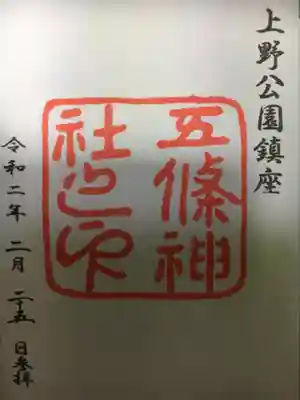 上野公園鎮座
五條神
社之印
令和二年 二月 二十五 日参拝